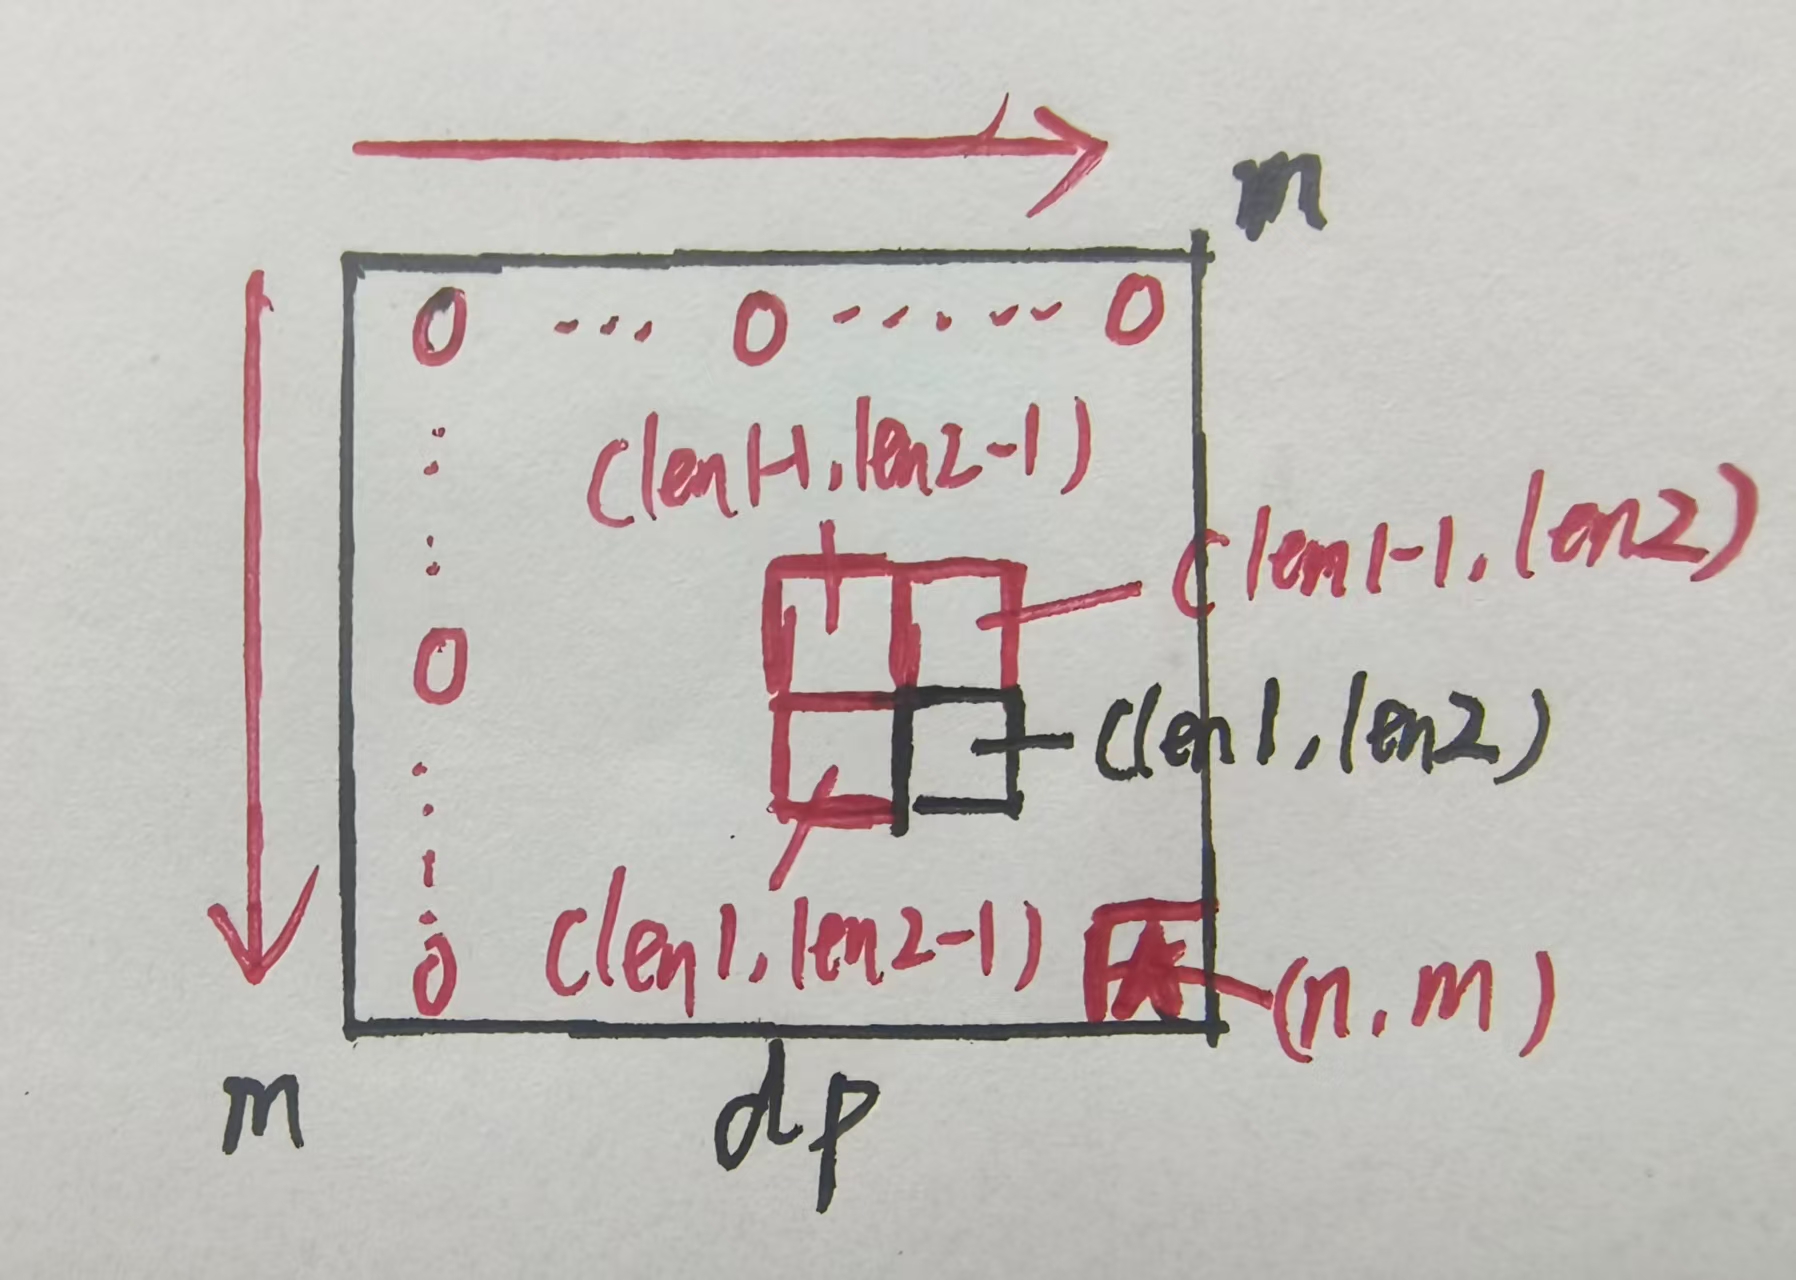 m
0 ... 0 ...... 0
(len1-1, len2-1)
(len1-1, len2)
0
(len1, len2)
(len1, len2-1)
0
(n, m)
m
dp